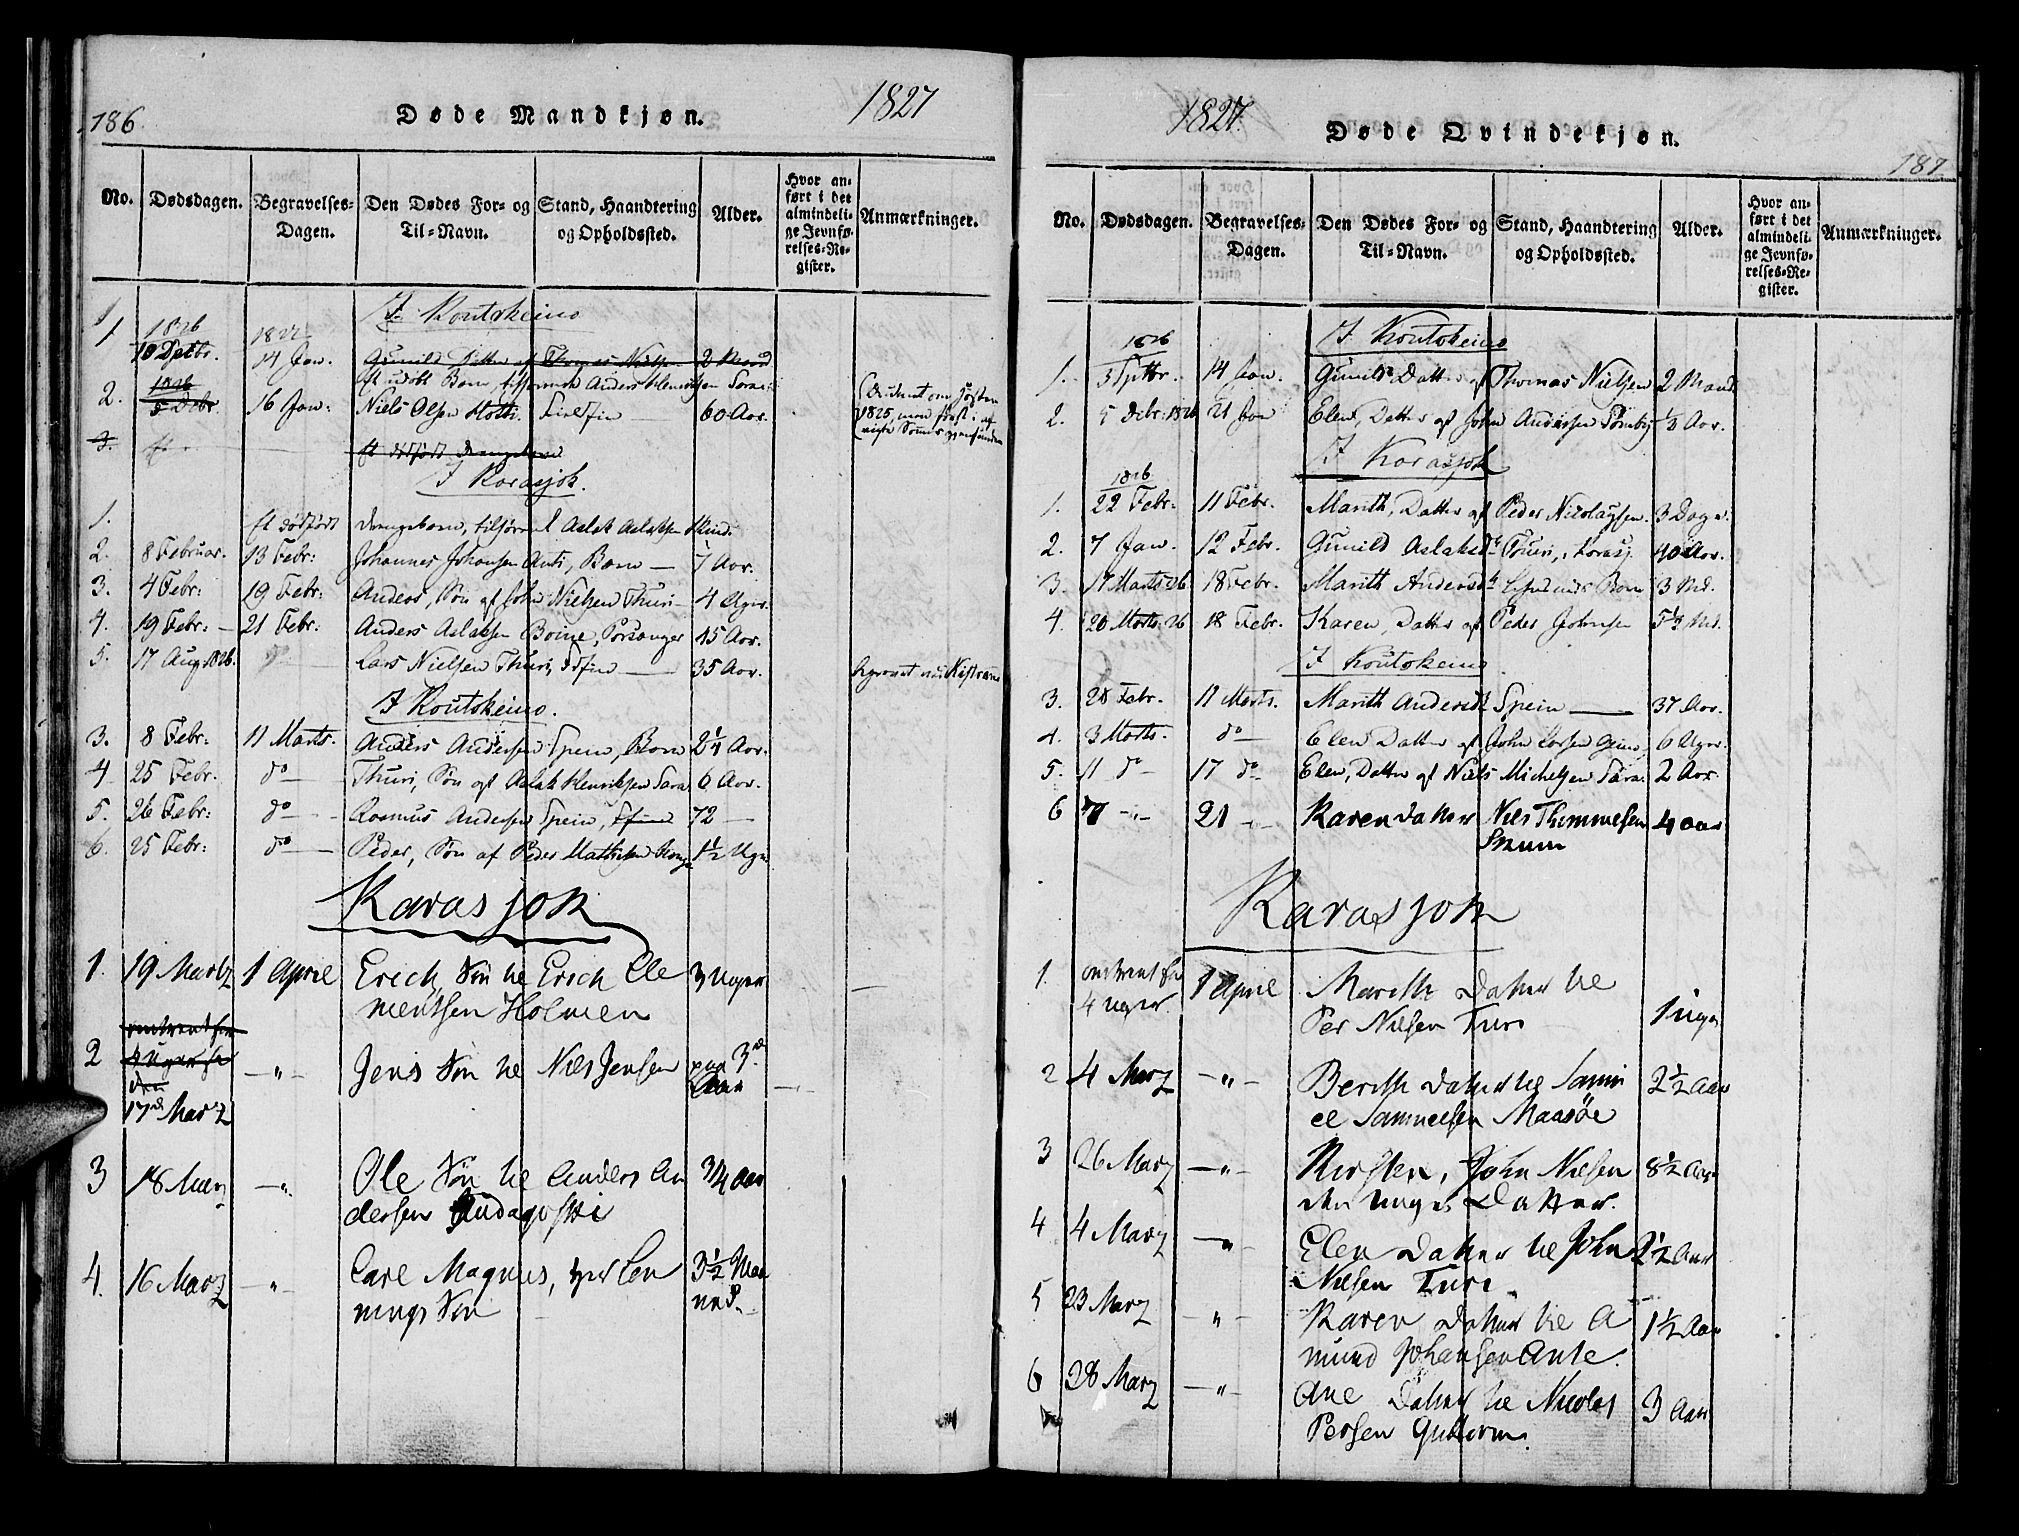 186.
Døde Mandkjøn.
1827
No.
Dødsdagen.
Begravelses-
Dagen.
Den Dødes For- og
Til-Navn.
Stand, Haandtering
og Opholdssted.
Alder.
Hvor an-
ført i det
almindeli-
ge Jevnfø-
relses-Re-
gister.
Anmærkninger.
I Koutokeino
1 1826 18 Dcbr. 14 Jan. Gunild Datter af Thomas Nielsen 2 Maand
et udøbt Barn, tilhørende Anders Henriksen Sara
2. 1826 5 Dcbr. 16 Jan: Niels Olsen 60 Aar.
3.
I Karasjok.
1. et dødfødt drengebarn, tilhørende Aslak Aslaksen
2. 8 Februar. 13 Febr: Johannes Johansen Anti, Barn — 7 Aar.
3. 4 Febr: 19 Febr: Anders, Søn af John Nielsen Thuri — 4 Uger.
4. 19 Febr: — 21 Febr: Anders Aslaksen Boine, Porsanger 15 Aar.
5. 17 Aug 1826. do Lars Nielsen Thuri, — 35 Aar.
I Koutokeino.
3. 8 Febr: 11 Marts. Anders Andersen Spein, Barn 2¼ Aar.
4 25 Febr. do — Thuri, Søn af Aslak Henriksen Sara 6 Aar.
5. 26 Febr: do — Rasmus Andersen Spein, 72 —
6. 25 Febr: do — Peder, Søn af Peder Mathisen 1½ Uger
Karasjok
1. 19 Martz 1 April Erich, Søn he Erich Cle 3 Uger
mentsen Holmen
2 17de Marz — " — Jens Søn he Niels Jensen paa 3de
Aar
3 18 Marz — " Ole Søn he Anders An ¾ Aar
dersen Audagosti
4. 16 Marz — " — Carl Magnus, Len 3½ Maa
nings Søn ned.
1827.
Døde Qvindekjøn.
187
No.
Dødsdagen.
Begravelses-
Dagen.
Den Dødes For- og
Til-Navn.
Stand, Haandtering
og Opholdssted.
Alder.
Hvor an-
ført i det
almindeli-
ge Jevnfø-
relses-Re-
gister.
Anmærkninger.
I Koutokeino
1826
1. 3 Sptbr. 14 Jan. Gunild Datter af Thomas Nielsen 2 Maand
2. 5 Debr: 1826 21 Jan Elen, Datter af John Andersen ⅓ Aar.
I Korasjok
1826
1. 22 Febr: 11 Febr. Marith, Datter af Peder Nicolaysen. 3 Dage.
2. 7 Jan. 12 Febr. Gunild Aslaksdr Thuri, Korasj. 40 Aar.
3. 17 Marts 26 18 Febr. Marith Andersdr Barn 3 Md.
4. 20 Marts 26 18 Febr. Karen, Datter af Peder Johnsen
I Koutokeino
3. 28 Febr. 11 Marts. Marith Andersdr Spein — 37 Aar.
4. 3 Marts. do — Elen Datter af John Larsen 6 Uger.
5. 11 do — 17 do Elen, Datter af Niels Michelsen Sara. 2 Aar.
6 21 — Karen datter Niels Thommesen 4 aar
Skum
Karasjok
1. omtrent for 1 April Marith Datter he
4 uger. Per Nielsen Turi 1 uge
2 4 Marz — " — Berith Datter he Samu 2½ Aar
el Samuelsen Maasöe
3 26 Marz — " — Kirsten, John Nielsen 8½ Aar
den unges Datter.
4 4 Marz — " — Elen Datter he John 2½ Aar
Nielsen Turi.
5 23 Marz — " — Karen Datter he A 1½ Aar
mund Johansen Ante.
6 28 Marz — " — Ane Datter he Nicolas 3 Aar
Persen Guttorm.